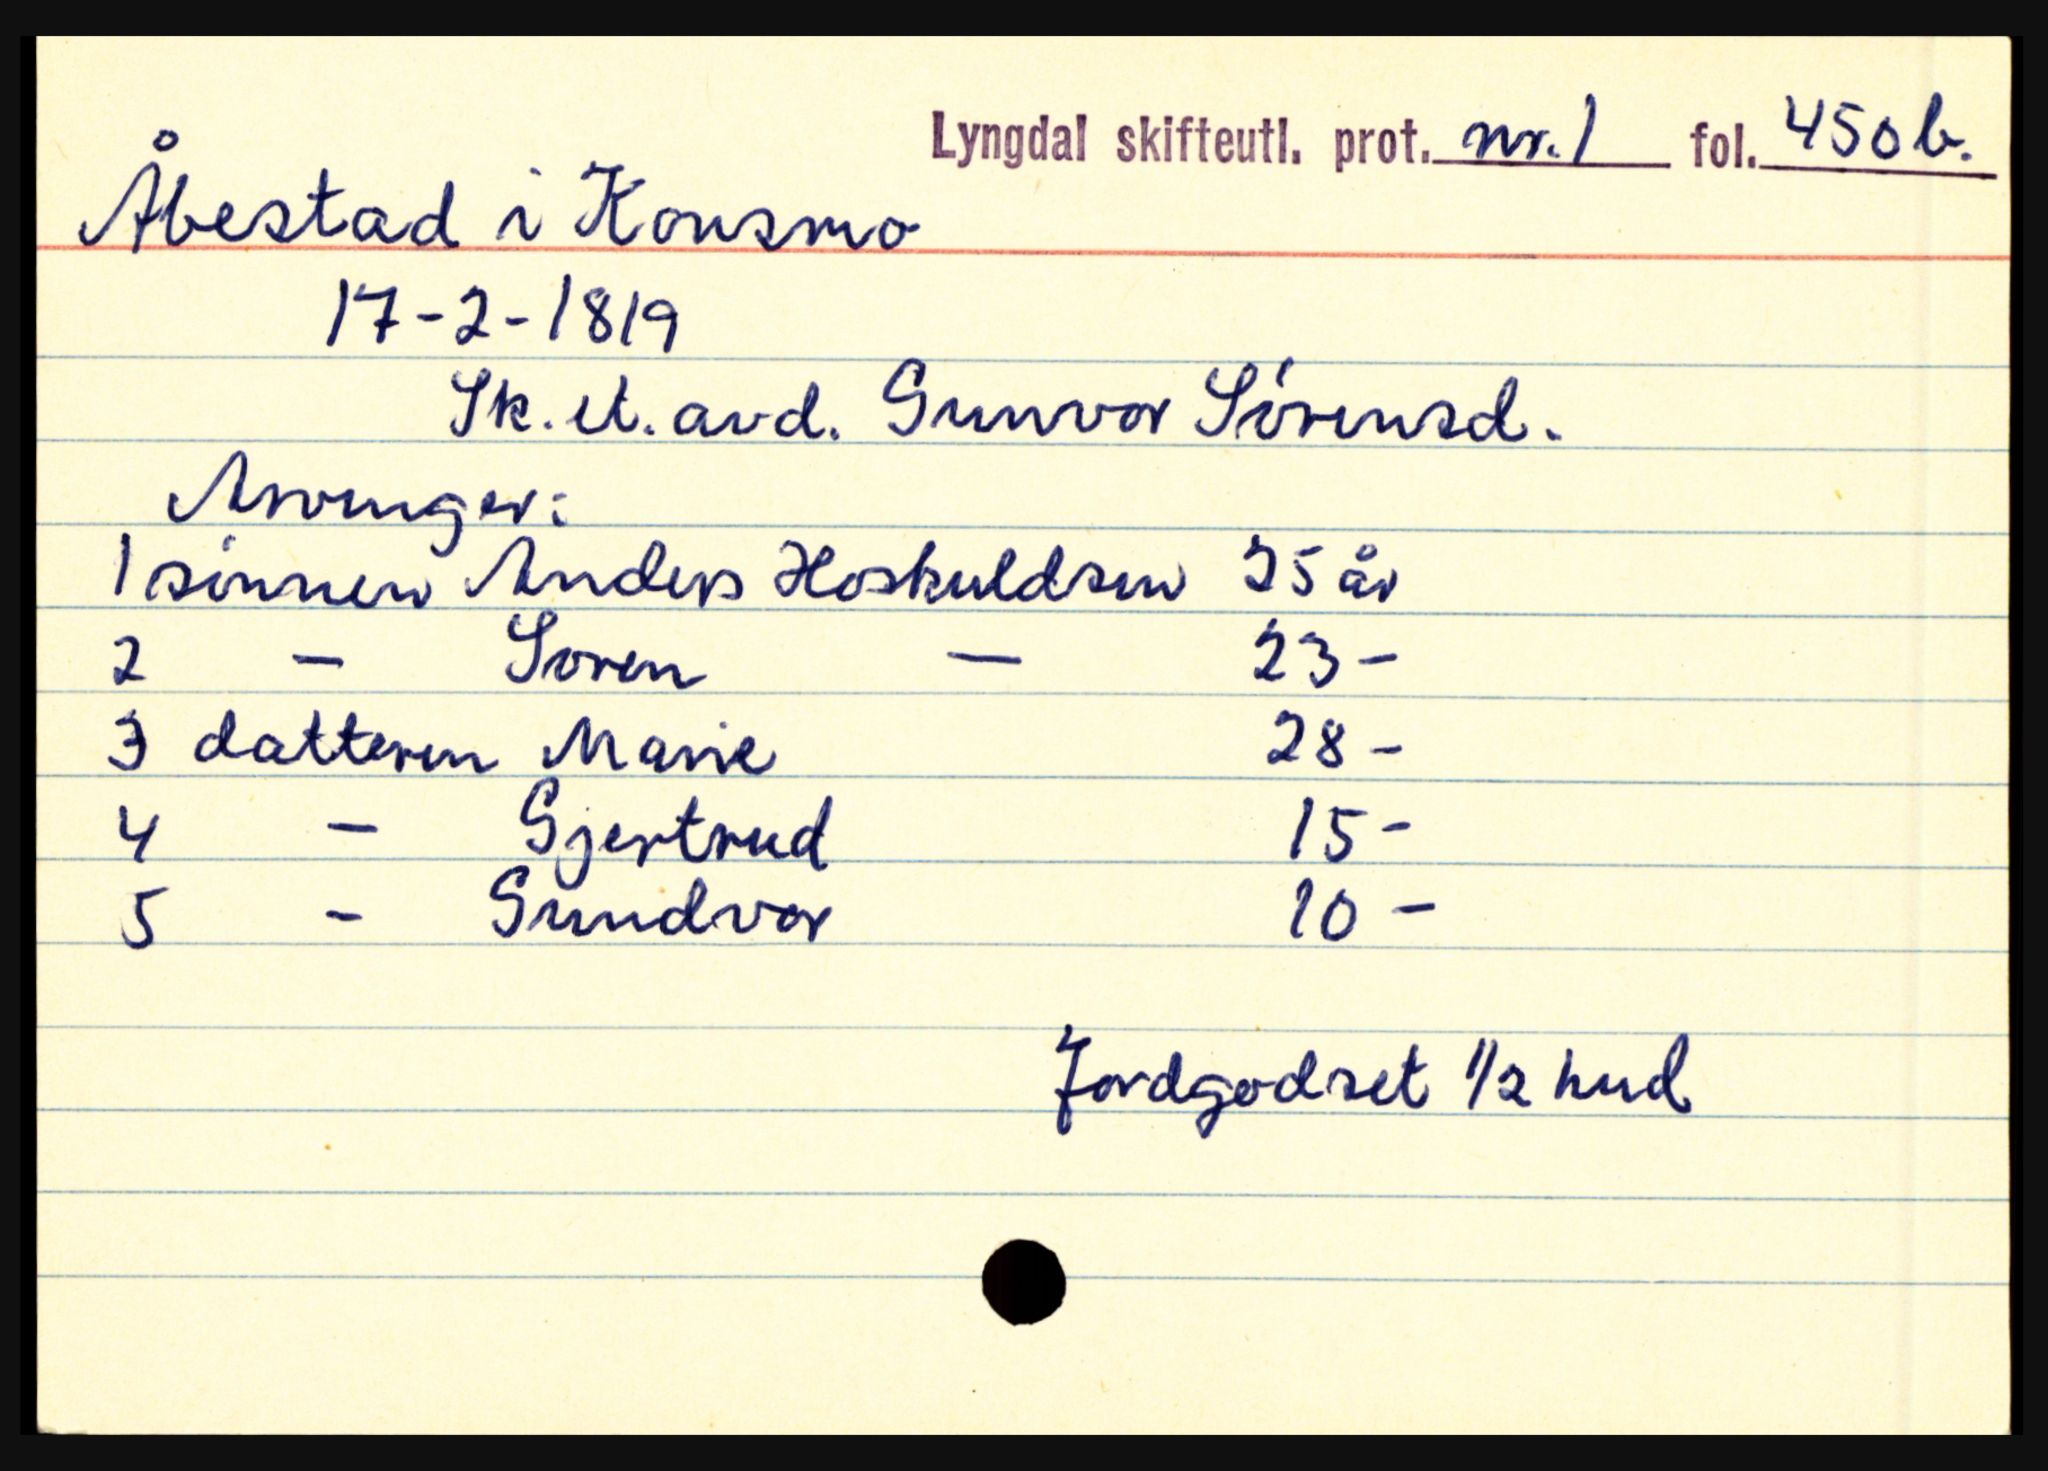 Lyngdal skifteutl. prot. nr. 1 fol. 450 b.
Åbestad i Konsmo
17-2-1819
Sk. et. avd. Gunvor Sørensd.
Arvinger:
1 sønnen Anders Hoskuldsen 35 år
2 — Soren — 23 -
3 datteren Marie 28 -
4 — Gjertrud 15 -
5 - Gundvor 10 -
Jordgodset 1/2 hud